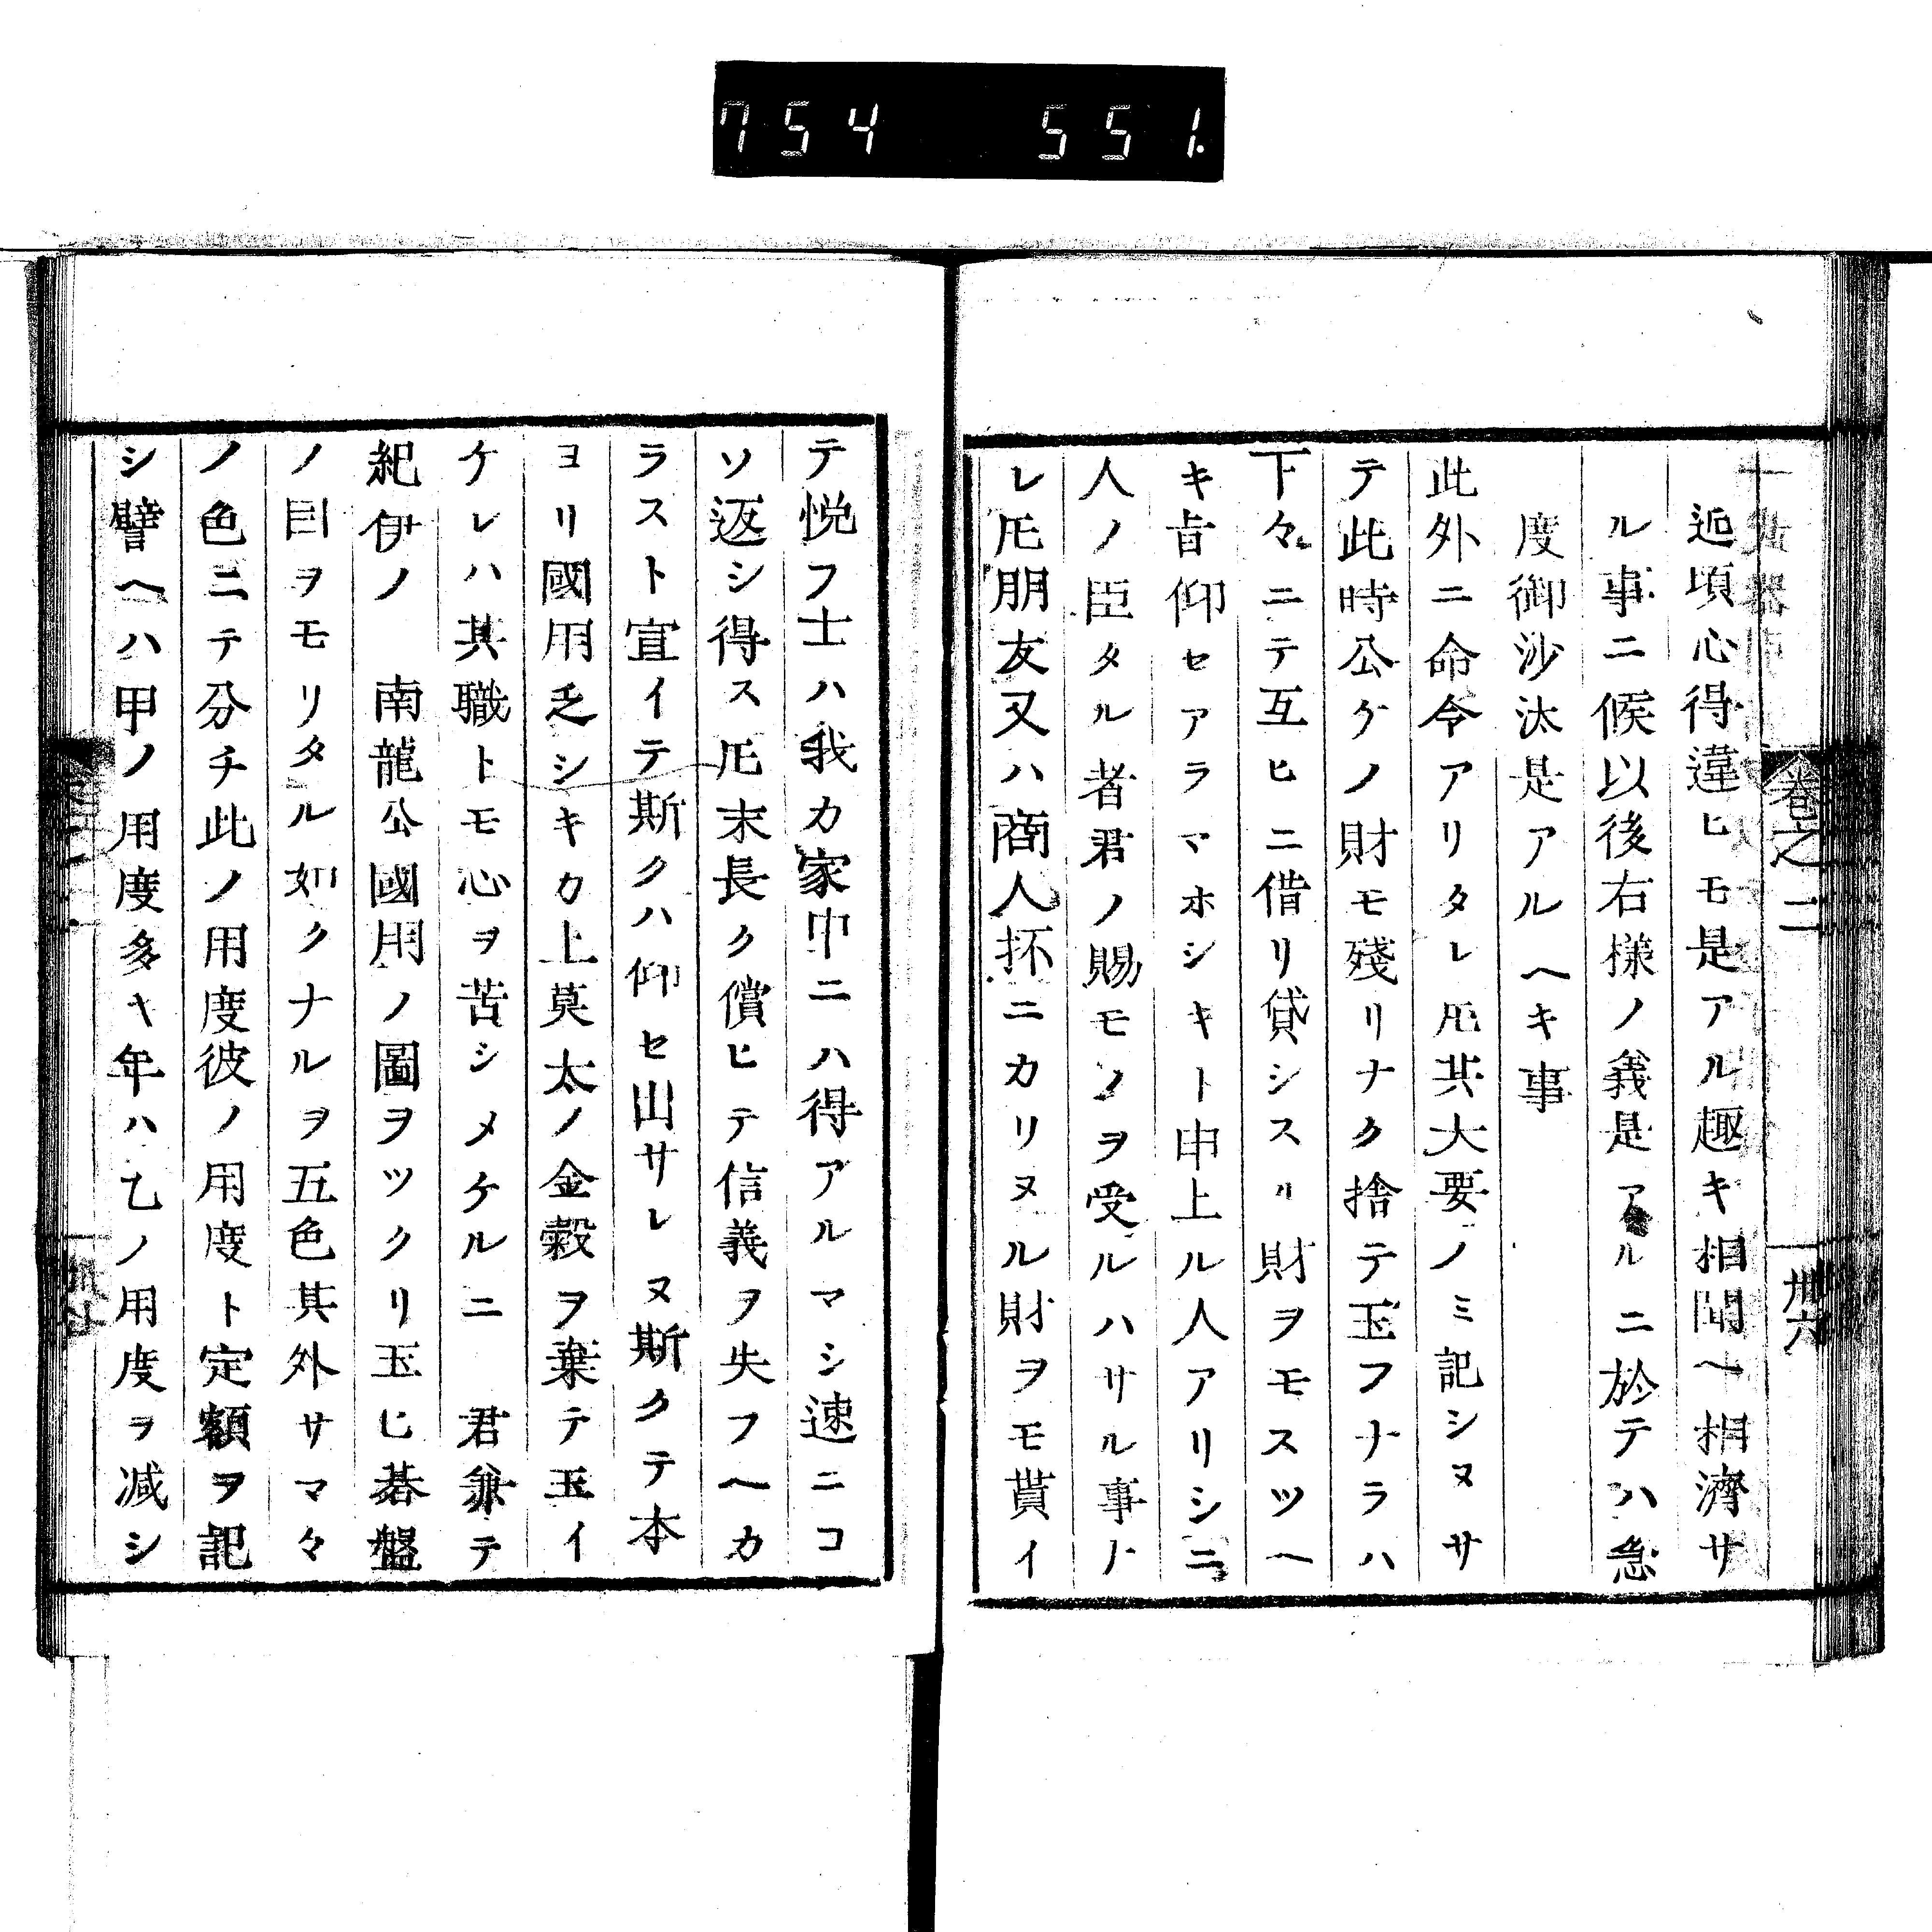 754 551.
卷之二 卅六
近頃心得違ヒモ是アル趣キ相聞ヘ相濟サ
ル事ニ候以後右樣ノ義是アルニ於テハ急
度御沙汰是アルヘキ事
此外ニ命令アリタレ𪜈其大要ノミ記シヌサ
テ此時公ケノ財モ殘リナク捨テ玉フナラハ
下々ニテ互ヒニ借リ貸シスル財ヲモスツヘ
キ旨仰セアラマホシキト申上ル人アリシニ
人ノ臣タル者君ノ賜モノヲ受ルハサル事ナ
レ𪜈朋友又ハ商人抔ニカリヌル財ヲモ貰イ
テ悦フ士ハ我カ家中ニハ得アルマシ速ニコ
ソ返シ得ス𪜈末長ク償ヒテ信義ヲ失フヘカ
ラスト宣イテ斯クハ仰セ出サレヌ斯クテ本
ヨリ國用乏シキカ上莫太ノ金穀ヲ棄テ玉イ
ケレハ其職トモ心ヲ苦シメケルニ 君兼テ
紀伊ノ 南龍公國用ノ圖ヲツクリ玉ヒ碁盤
ノ目ヲモリタル如クナルヲ五色其外サマ々
ノ色ニテ分チ此ノ用度彼ノ用度ト定額ヲ記
シ譬ヘハ甲ノ用度多キ年ハ乙ノ用度ヲ減シ